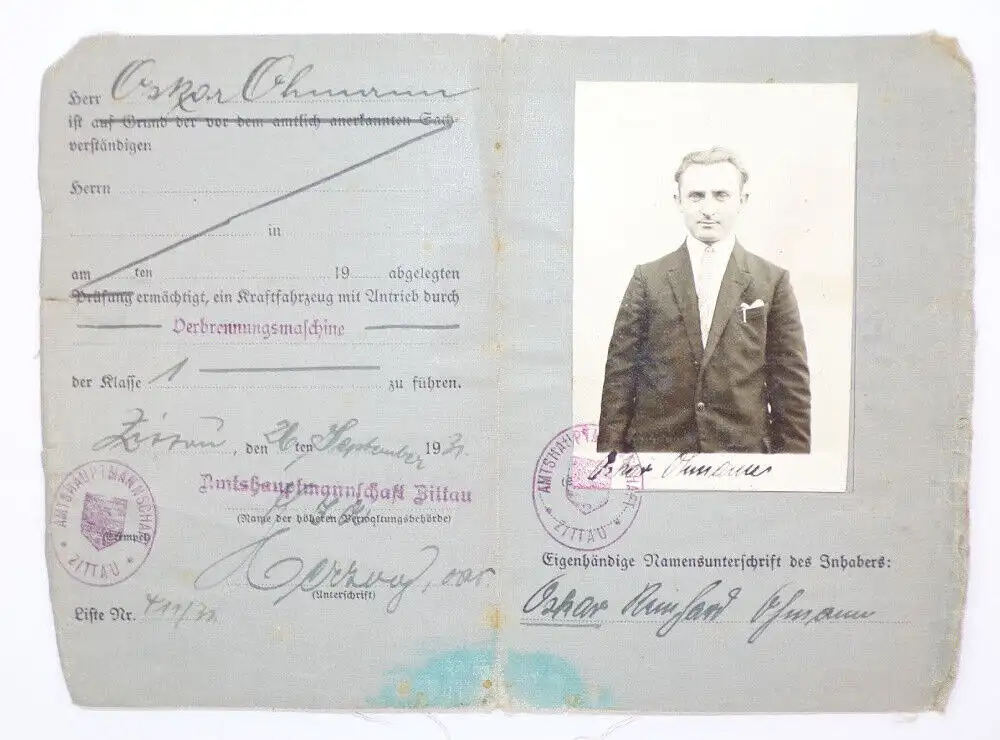 Herr Oskar Ohmann
ist auf Grund der vor dem amtlich anerkannten Sach-
verständigen
Herrn
in
am ten 19 abgelegten
Prüfung ermächtigt, ein Kraftfahrzeug mit Antrieb durch
Verbrennungsmaschine
der Klasse 1 zu führen.
Zittau, den 26ten September 1931.
Amtshauptmannschaft Zittau
(Name der höheren Verwaltungsbehörde)
AMTSHAUPTMANNSCHAFT
(Stempel)
ZITTAU
(Unterschrift)
Liste Nr.
Oskar Ohmann
AMTSHAUPTMANNSCHAFT
ZITTAU
Eigenhändige Namensunterschrift des Inhabers:
Oskar Reinhard Ohmann